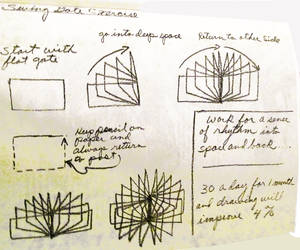 Swing Gate Exercise
go into deep space
Return to other side
Start with
flat gate
Keep pencil on
paper and
always return
to post
Work for a sense
of rhythm into
space and back...
30 a day for 1 month
and drawing will
improve 4%